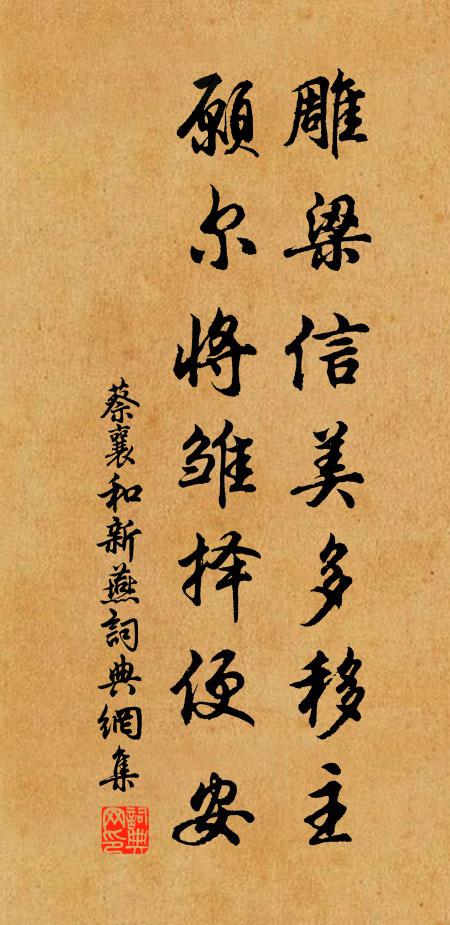 雕梁信美多移主
願尔将雏择便安
蔡襄和新燕詞典網集
詞典網印